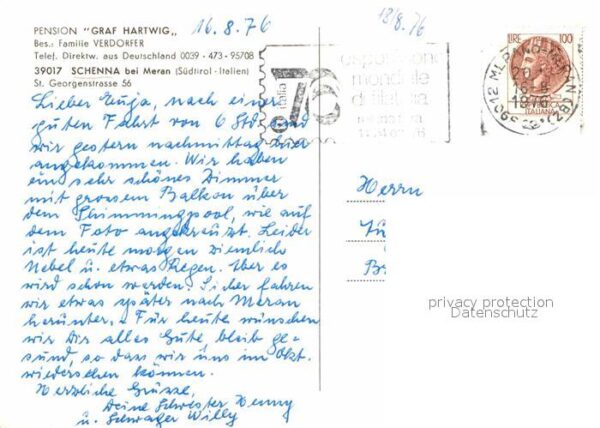 PENSION "GRAF HARTWIG"
Bes.: Familie VERDORFER
Telef. Direktw. aus Deutschland 0039 - 473 - 95708
39017 SCHENNA bei Meran (Südtirol - Italien)
St. Georgenstrasse 56
16.8.76
Lieber, nach einer
guten Fahrt von 6 Std. sind
wir gestern nachmittag hier
angekommen. Wir haben
ein sehr schönes Zimmer
mit grossem Balkon über
dem Swimmingpool, wie auf
dem Foto angekreuzt. Leider
ist heute morgen ziemlich
Nebel u. etwas Regen. Aber es
wird schon werden. Sicher fahren
wir etwas später nach Meran
herunter. Für heute wünschen
wir Dir alles Gute, bleib ge-
sund, so dass wir uns im Okt.
wiedersehen können.
Herzliche Grüsse,
Deine Schwester Henny
u. Schwager Willy
18/8.76
italia 76
esposizione
mondiale
di filatelia
LIRE 100
ITALIANA
39012 MERANO-MERAN (BZ)
1976
Herrn
privacy protection
Datenschutz